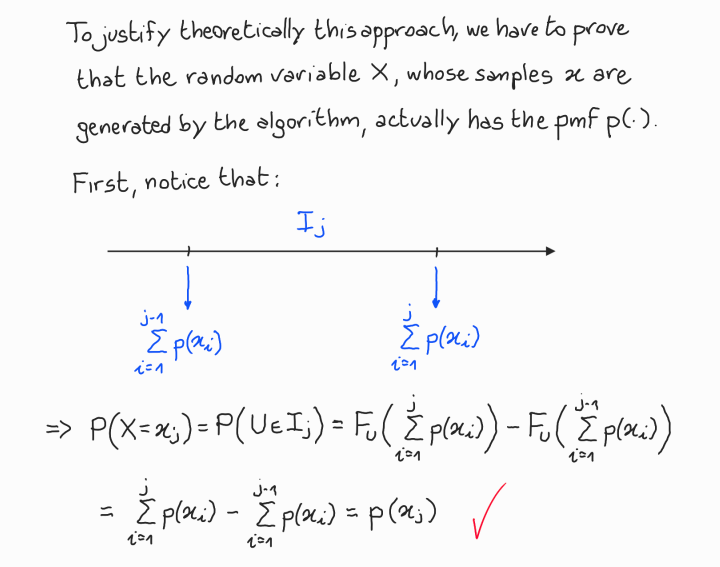 To justify theoretically this approach, we have to prove
that the random variable X, whose samples x are
generated by the algorithm, actually has the pmf p(·).
First, notice that:
I_j
∑_{i=1}^{j-1} p(x_i) ∑_{i=1}^{j} p(x_i)
=> P(X=x_j) = P(U∈I_j) = F_U(∑_{i=1}^{j} p(x_i)) - F_U(∑_{i=1}^{j-1} p(x_i))
= ∑_{i=1}^{j} p(x_i) - ∑_{i=1}^{j-1} p(x_i) = p(x_j) ✓